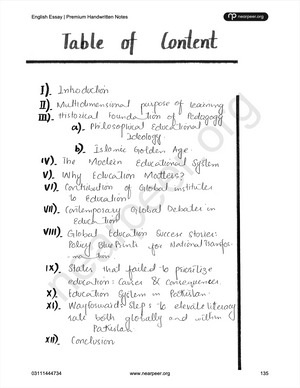 English Essay | Premium Handwritten Notes
nearpeer.org
Table of Content
I) Introduction
II) Multidimensional purpose of learning
III) Historical Foundation of Pedagogy
a) Philosophical Educational
Ideology.
b) Islamic Golden Age
IV) The Modern Educational System
V) Why Education Matters?
VI) Contribution of Global institutes
to Education
VII) Contemporary Global Debates in
Education
VIII) Global Education Success Stories:
Policy Blue Prints for National Transfor-
mation
IX) States that failed to prioritize
education: Causes & Consequences.
X) Education System in Pakistan.
XI) Wayforwards: Steps to elevate literacy
rate both globally and within
Pakistan.
XII) Conclusion
nearpeer.org
03111444734
www.nearpeer.org
135